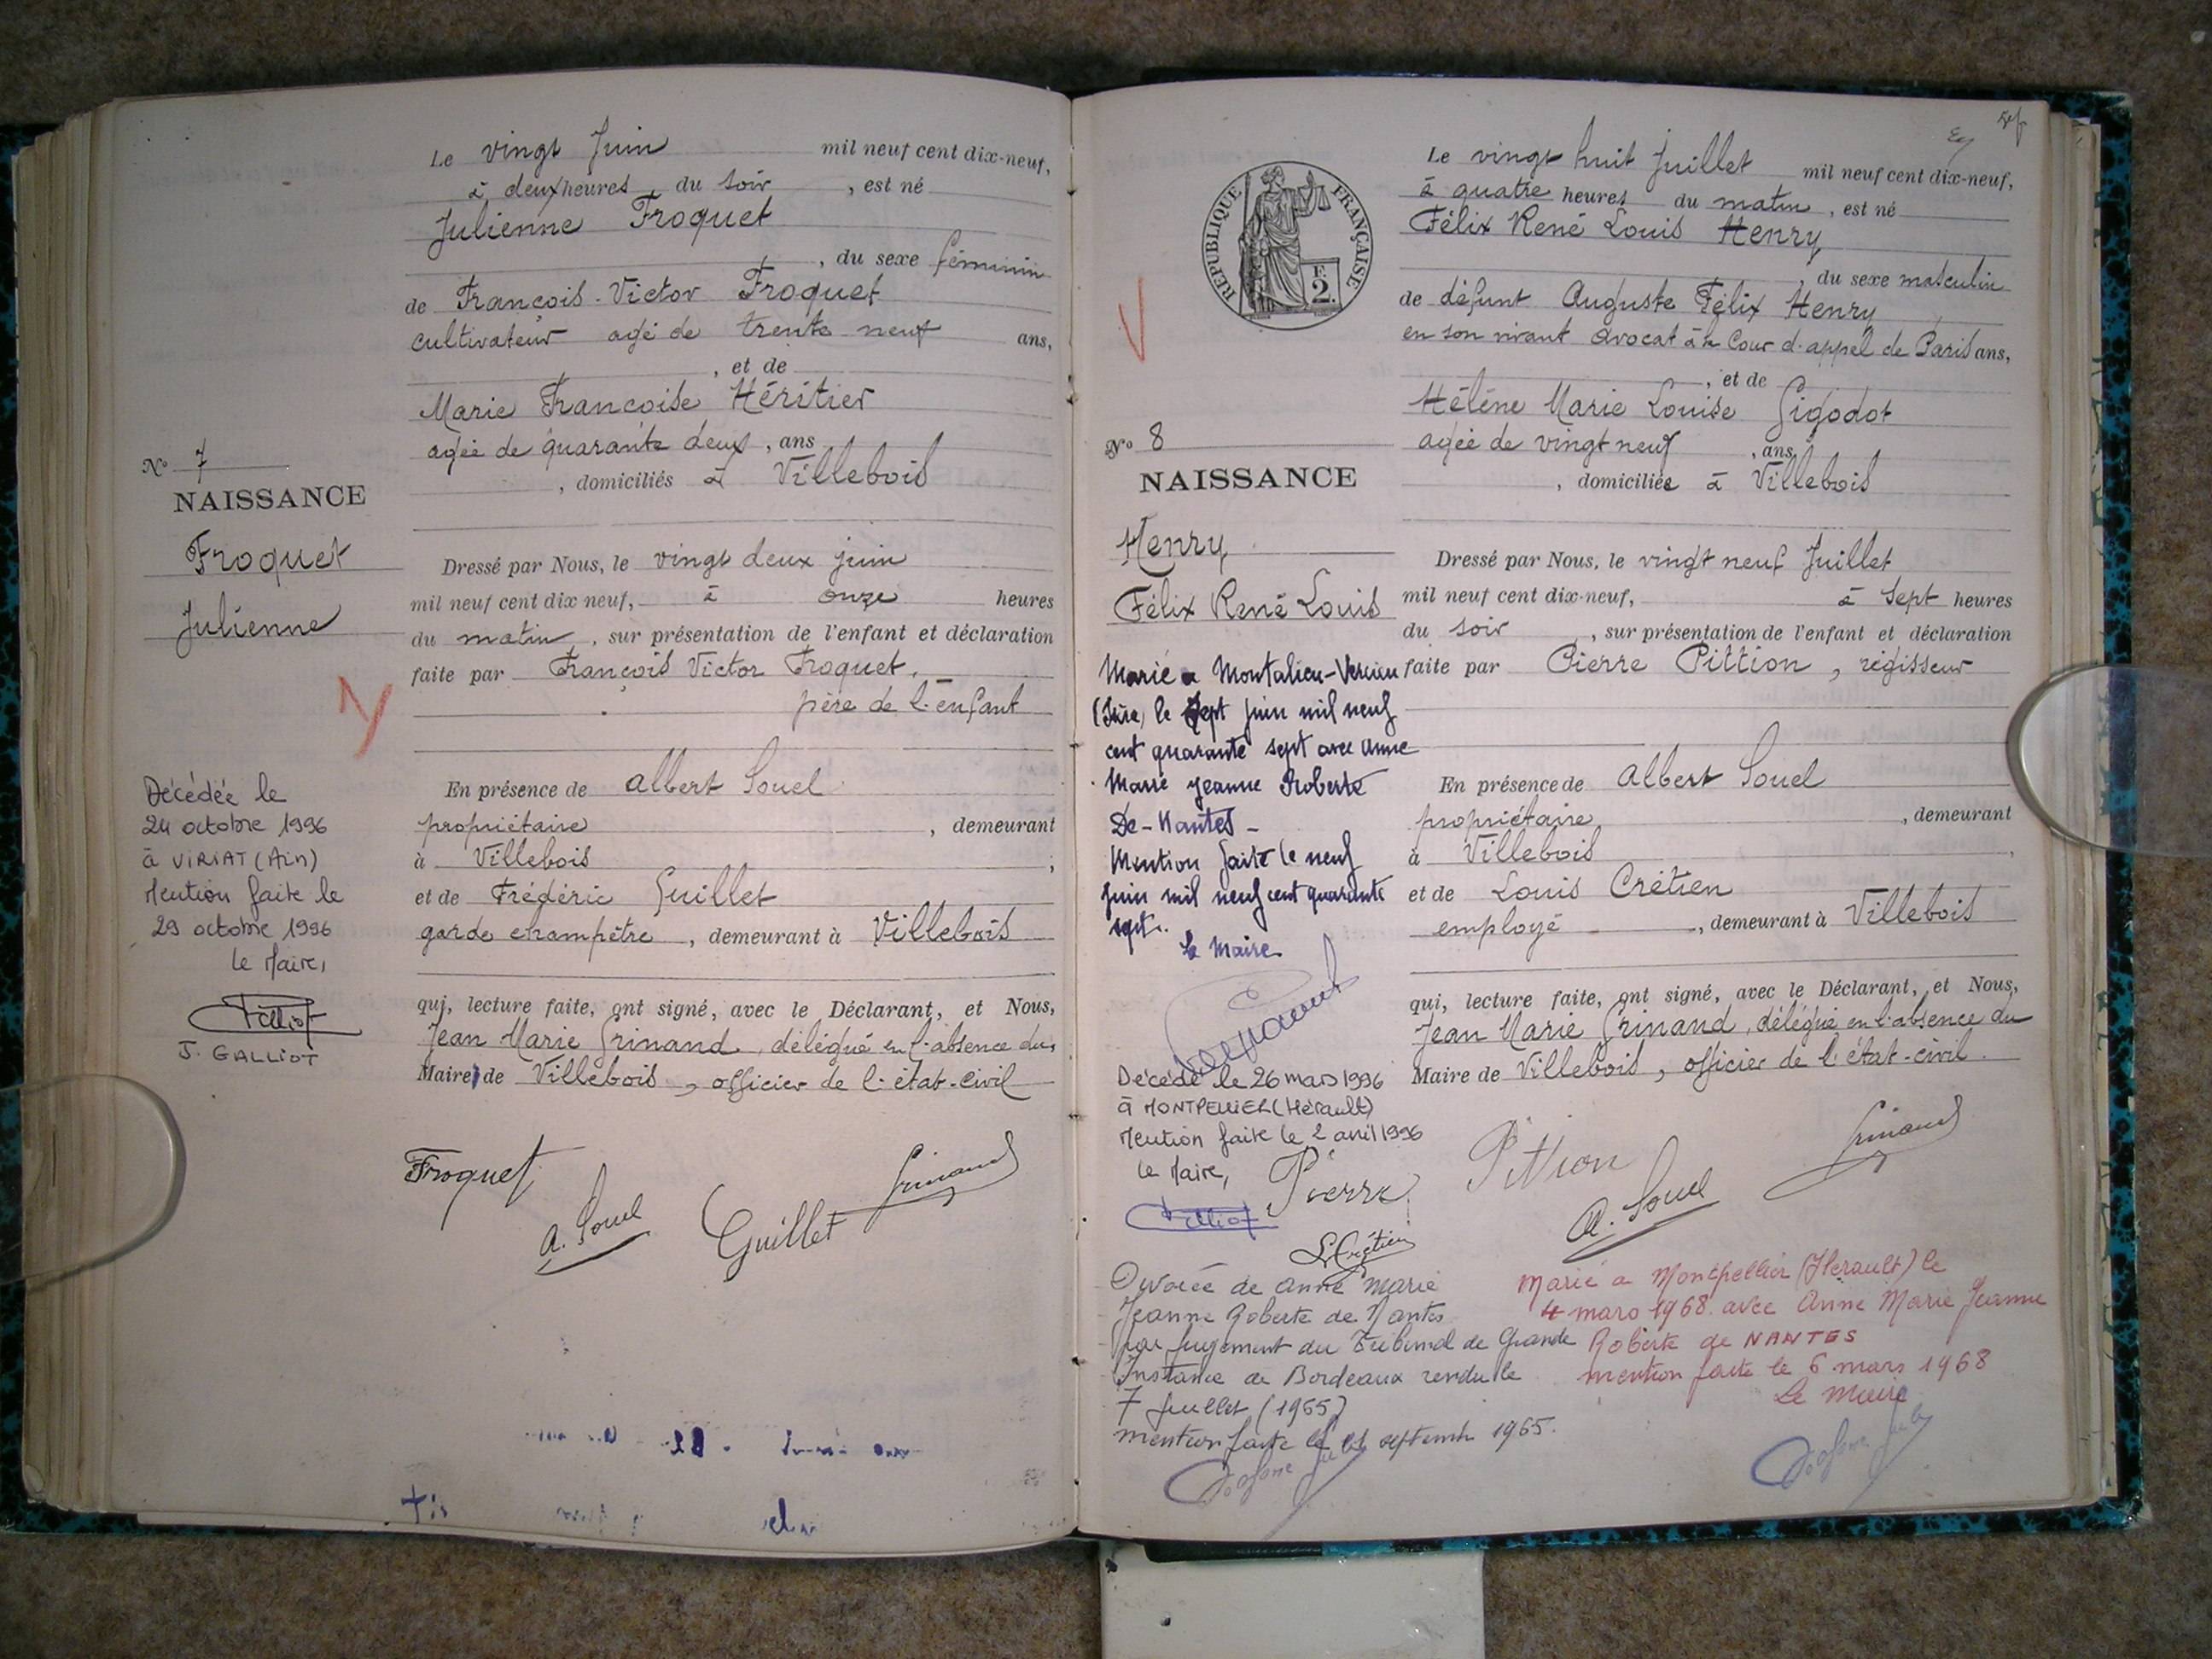 Le vingt Juin mil neuf cent dix-neuf,
à deux heures, du soir, est né
Julienne Froquet
, du sexe féminin
de François-Victor Froquet
cultivateur agé de trente neuf ans,
, et de
Marie Françoise Héritier
agée de quarante deux, ans
, domiciliés à Villebois
N° 7
NAISSANCE
Froquet
Julienne
Dressé par Nous, le vingt deux juin
mil neuf cent dix neuf, à onze heures
du matin, sur présentation de l'enfant et déclaration
faite par François Victor Froquet,
père de l'enfant
En présence de Albert Souel
propriétaire, demeurant
à Villebois ;
et de Frédéric Guillet
garde champêtre, demeurant à Villebois
qui, lecture faite, ont signé, avec le Déclarant, et Nous,
Jean Marie Grinand, délégué en l'absence du
Maire de Villebois, officier de l'état-civil
Décédée le
24 octobre 1996
à VIRIAT (Ain)
Mention faite le
29 octobre 1996
Le Maire,
J. GALLIOT
Froquet
A. Souel
Guillet
Grinand
REPUBLIQUE FRANÇAISE
F.
2.
Le vingt huit Juillet mil neuf cent dix-neuf,
à quatre heures du matin, est né
Félix René Louis Henry
, du sexe masculin
de défunt Auguste Félix Henry
en son vivant avocat à la Cour d'appel de Paris ans,
, et de
Hélène Marie Louise Gigodot
agée de vingt neuf, ans
, domiciliée à Villebois
N° 8
NAISSANCE
Henry
Félix René Louis
Dressé par Nous, le vingt neuf Juillet
mil neuf cent dix-neuf, à sept heures
du soir, sur présentation de l'enfant et déclaration
faite par Pierre Pittion, régisseur
En présence de Albert Souel
propriétaire, demeurant
à Villebois,
et de Louis Crétien
employé, demeurant à Villebois
qui, lecture faite, ont signé, avec le Déclarant, et Nous,
Jean Marie Grinand, délégué en l'absence du
Maire de Villebois, officier de l'état-civil.
Marié a Montalieu-Vercieu
(Isère) le sept juin mil neuf
cent quarante sept avec Anne
Marie Jeanne Roberte
De-Nantes -
Mention faite le neuf
juin mil neuf cent quarante
sept.
Le Maire
Décédé le 26 mars 1996
à MONTPELLIER (Hérault)
Mention faite le 2 avril 1996
Le Maire,
Pierre Pittion
Grinand
A. Souel
L. Crétien
Divorcé de Anne Marie
Jeanne Roberte de Nantes
par jugement du Tribunal de Grande
Instance de Bordeaux rendu le
7 Juillet (1965)
mention faite le septembre 1965.
Marié a Montpellier (Hérault) le
4 mars 1968 avec Anne Marie Jeanne
Roberte de NANTES
mention faite le 6 mars 1968
Le Maire